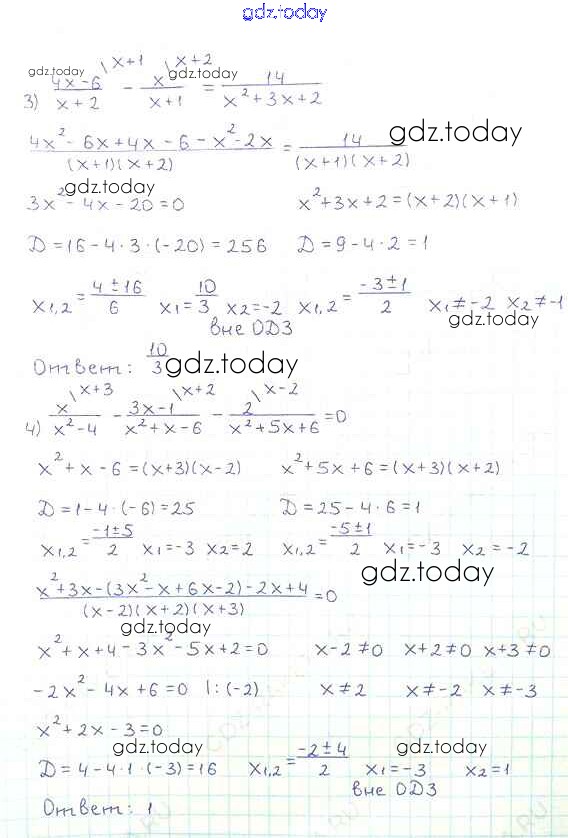 gdz.today
3) (4x-6)/(x+2) \x+1 - x/(x+1) \x+2 = 14/(x²+3x+2)
gdz.today gdz.today
(4x²-6x+4x-6-x²-2x)/((x+1)(x+2)) = 14/((x+1)(x+2)) gdz.today
gdz.today
3x²-4x-20=0 x²+3x+2=(x+2)(x+1)
D=16-4·3·(-20)=256 D=9-4·2=1
x1,2=(4±16)/6 x1=10/3 x2=-2 x1,2=(-3±1)/2 x1≠-2 x2≠-1
вне ОДЗ gdz.today
Ответ: 10/3 gdz.today
4) x/(x²-4) \x+3 - (3x-1)/(x²+x-6) \x+2 - 2/(x²+5x+6) \x-2 =0
x²+x-6=(x+3)(x-2) x²+5x+6=(x+3)(x+2)
D=1-4·(-6)=25 D=25-4·6=1
x1,2=(-1±5)/2 x1=-3 x2=2 x1,2=(-5±1)/2 x1=-3 x2=-2
gdz.today
(x²+3x-(3x²-x+6x-2)-2x+4)/((x-2)(x+2)(x+3))=0
gdz.today
x²+x+4-3x²-5x+2=0 x-2≠0 x+2≠0 x+3≠0
-2x²-4x+6=0 |:(-2) x≠2 x≠-2 x≠-3
x²+2x-3=0
gdz.today gdz.today
D=4-4·1·(-3)=16 x1,2=(-2±4)/2 x1=-3 x2=1
вне ОДЗ
Ответ: 1